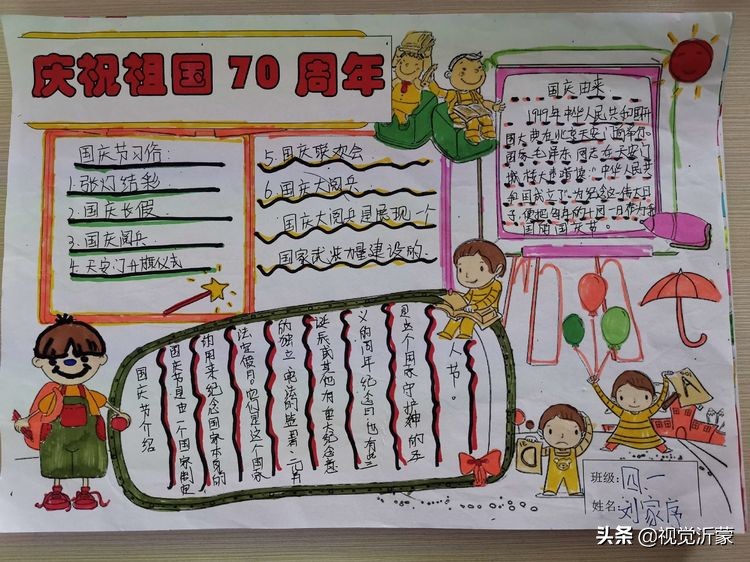 庆祝祖国70周年
国庆节习俗
1.张灯结彩
2.国庆长假
3.国庆阅兵
4.天安门升旗仪式
5.国庆联欢会
6.国庆大阅兵
国庆大阅兵是展现一个
国家武装力量建设的
国庆由来
1949年中华人民共和国开
国大典在北京天安门
国家毛泽东同志在天安门
中华人民共
和国成立了为纪念这一伟大日
子便把每年的十月一日作为
国庆节。
国庆节介绍
国庆节是由一个国家制定
的用来纪念国家本身的
法定假日它们是这个国家
的独立宪法的签署元首
诞辰或其他有重大纪念意
义的周年纪念日也有些
是这个国家守护神的
人节。
A
D
班级:四一
姓名:刘家序
头条@视觉沂蒙